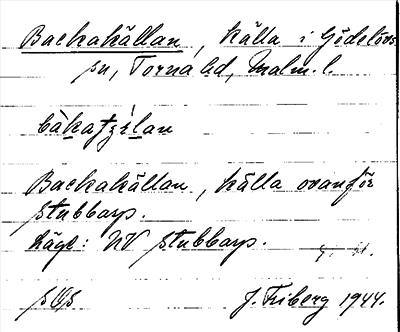 Backakällan, källa i Gödelövs
sn, Torna hd, Malm. l.
bákatʃɛ̀lan
Backakällan, källa ovanför
Stubbarp.
Läge: NV Stubbarp.
J. Friberg 1944.